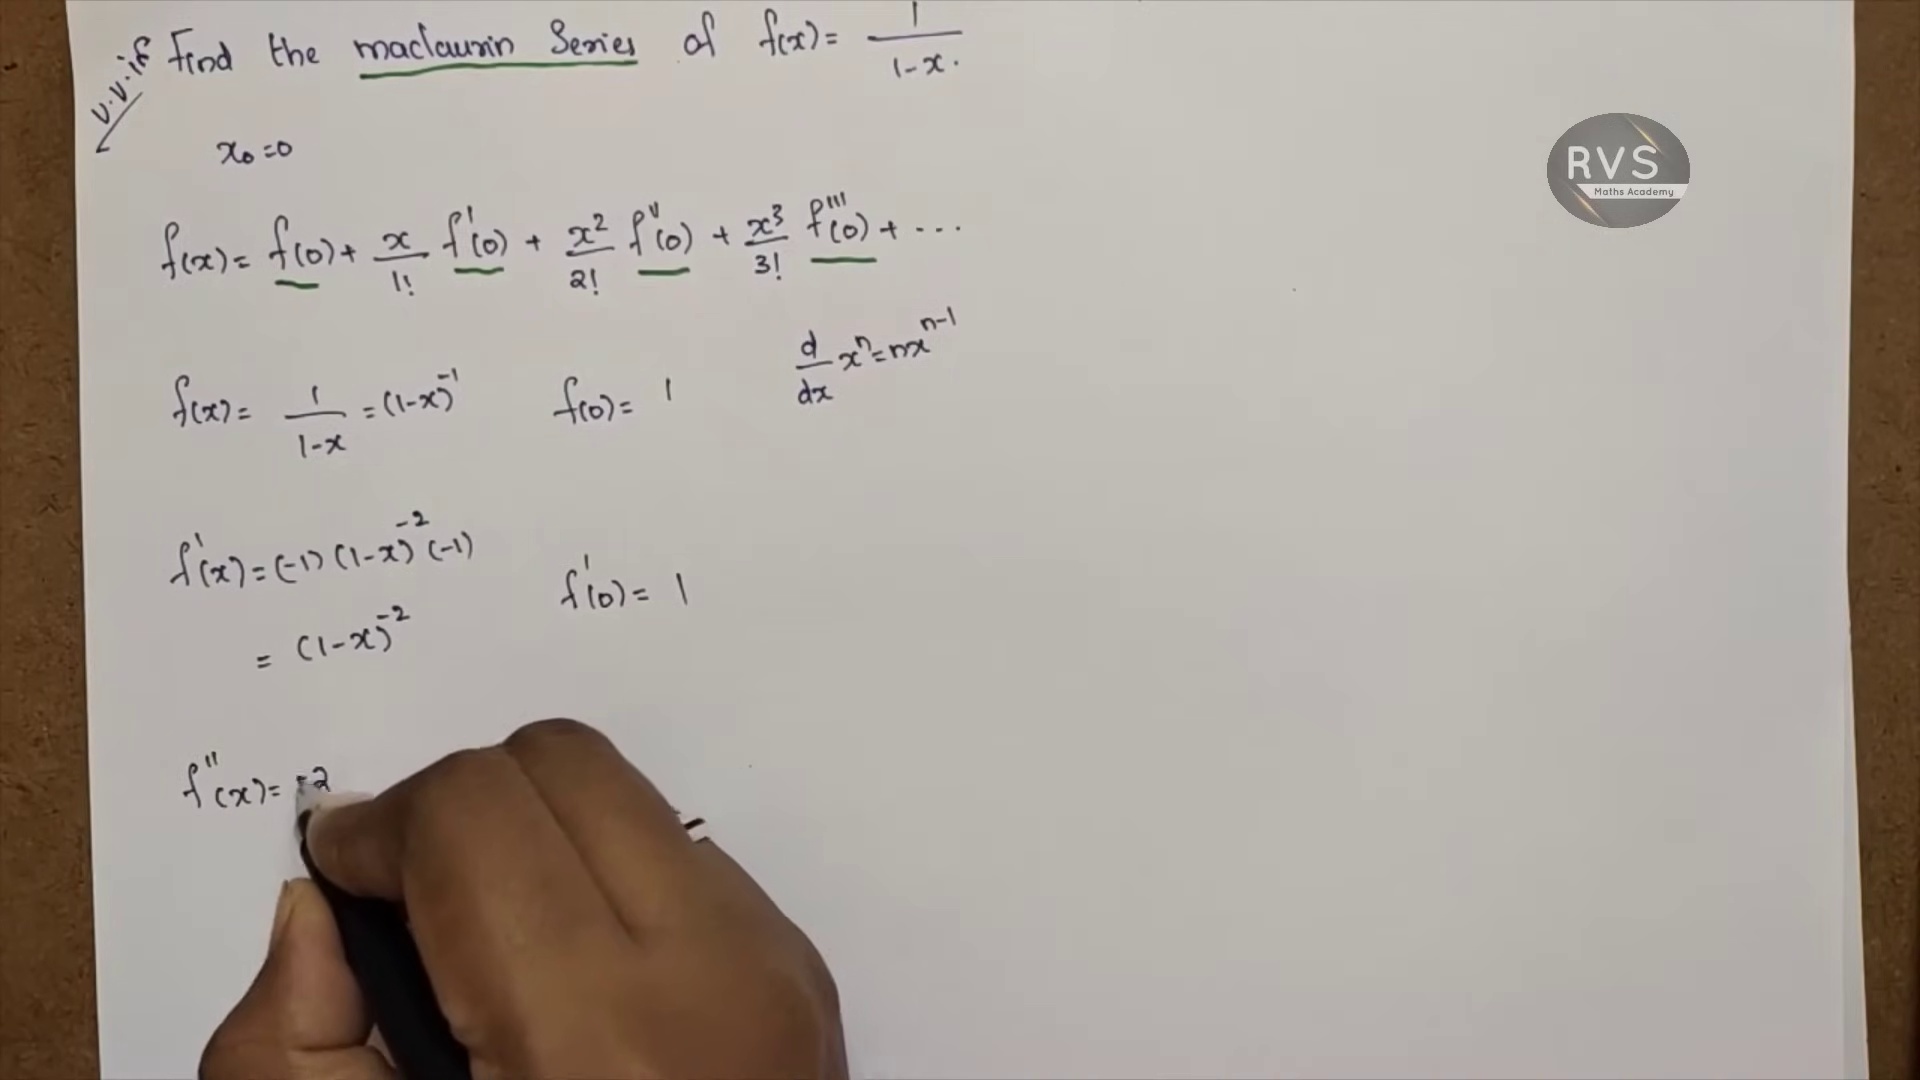 v.v.if Find the maclaurin Series of f(x) = 1/(1-x).
RVS
Maths Academy
x₀ = 0
f(x) = f(0) + x/1! f'(0) + x²/2! f''(0) + x³/3! f'''(0) + ...
d/dx xⁿ = nxⁿ⁻¹
f(x) = 1/(1-x) = (1-x)⁻¹ f(0) = 1
f'(x) = (-1) (1-x)⁻² (-1)
f'(0) = 1
= (1-x)⁻²
f''(x) = -2